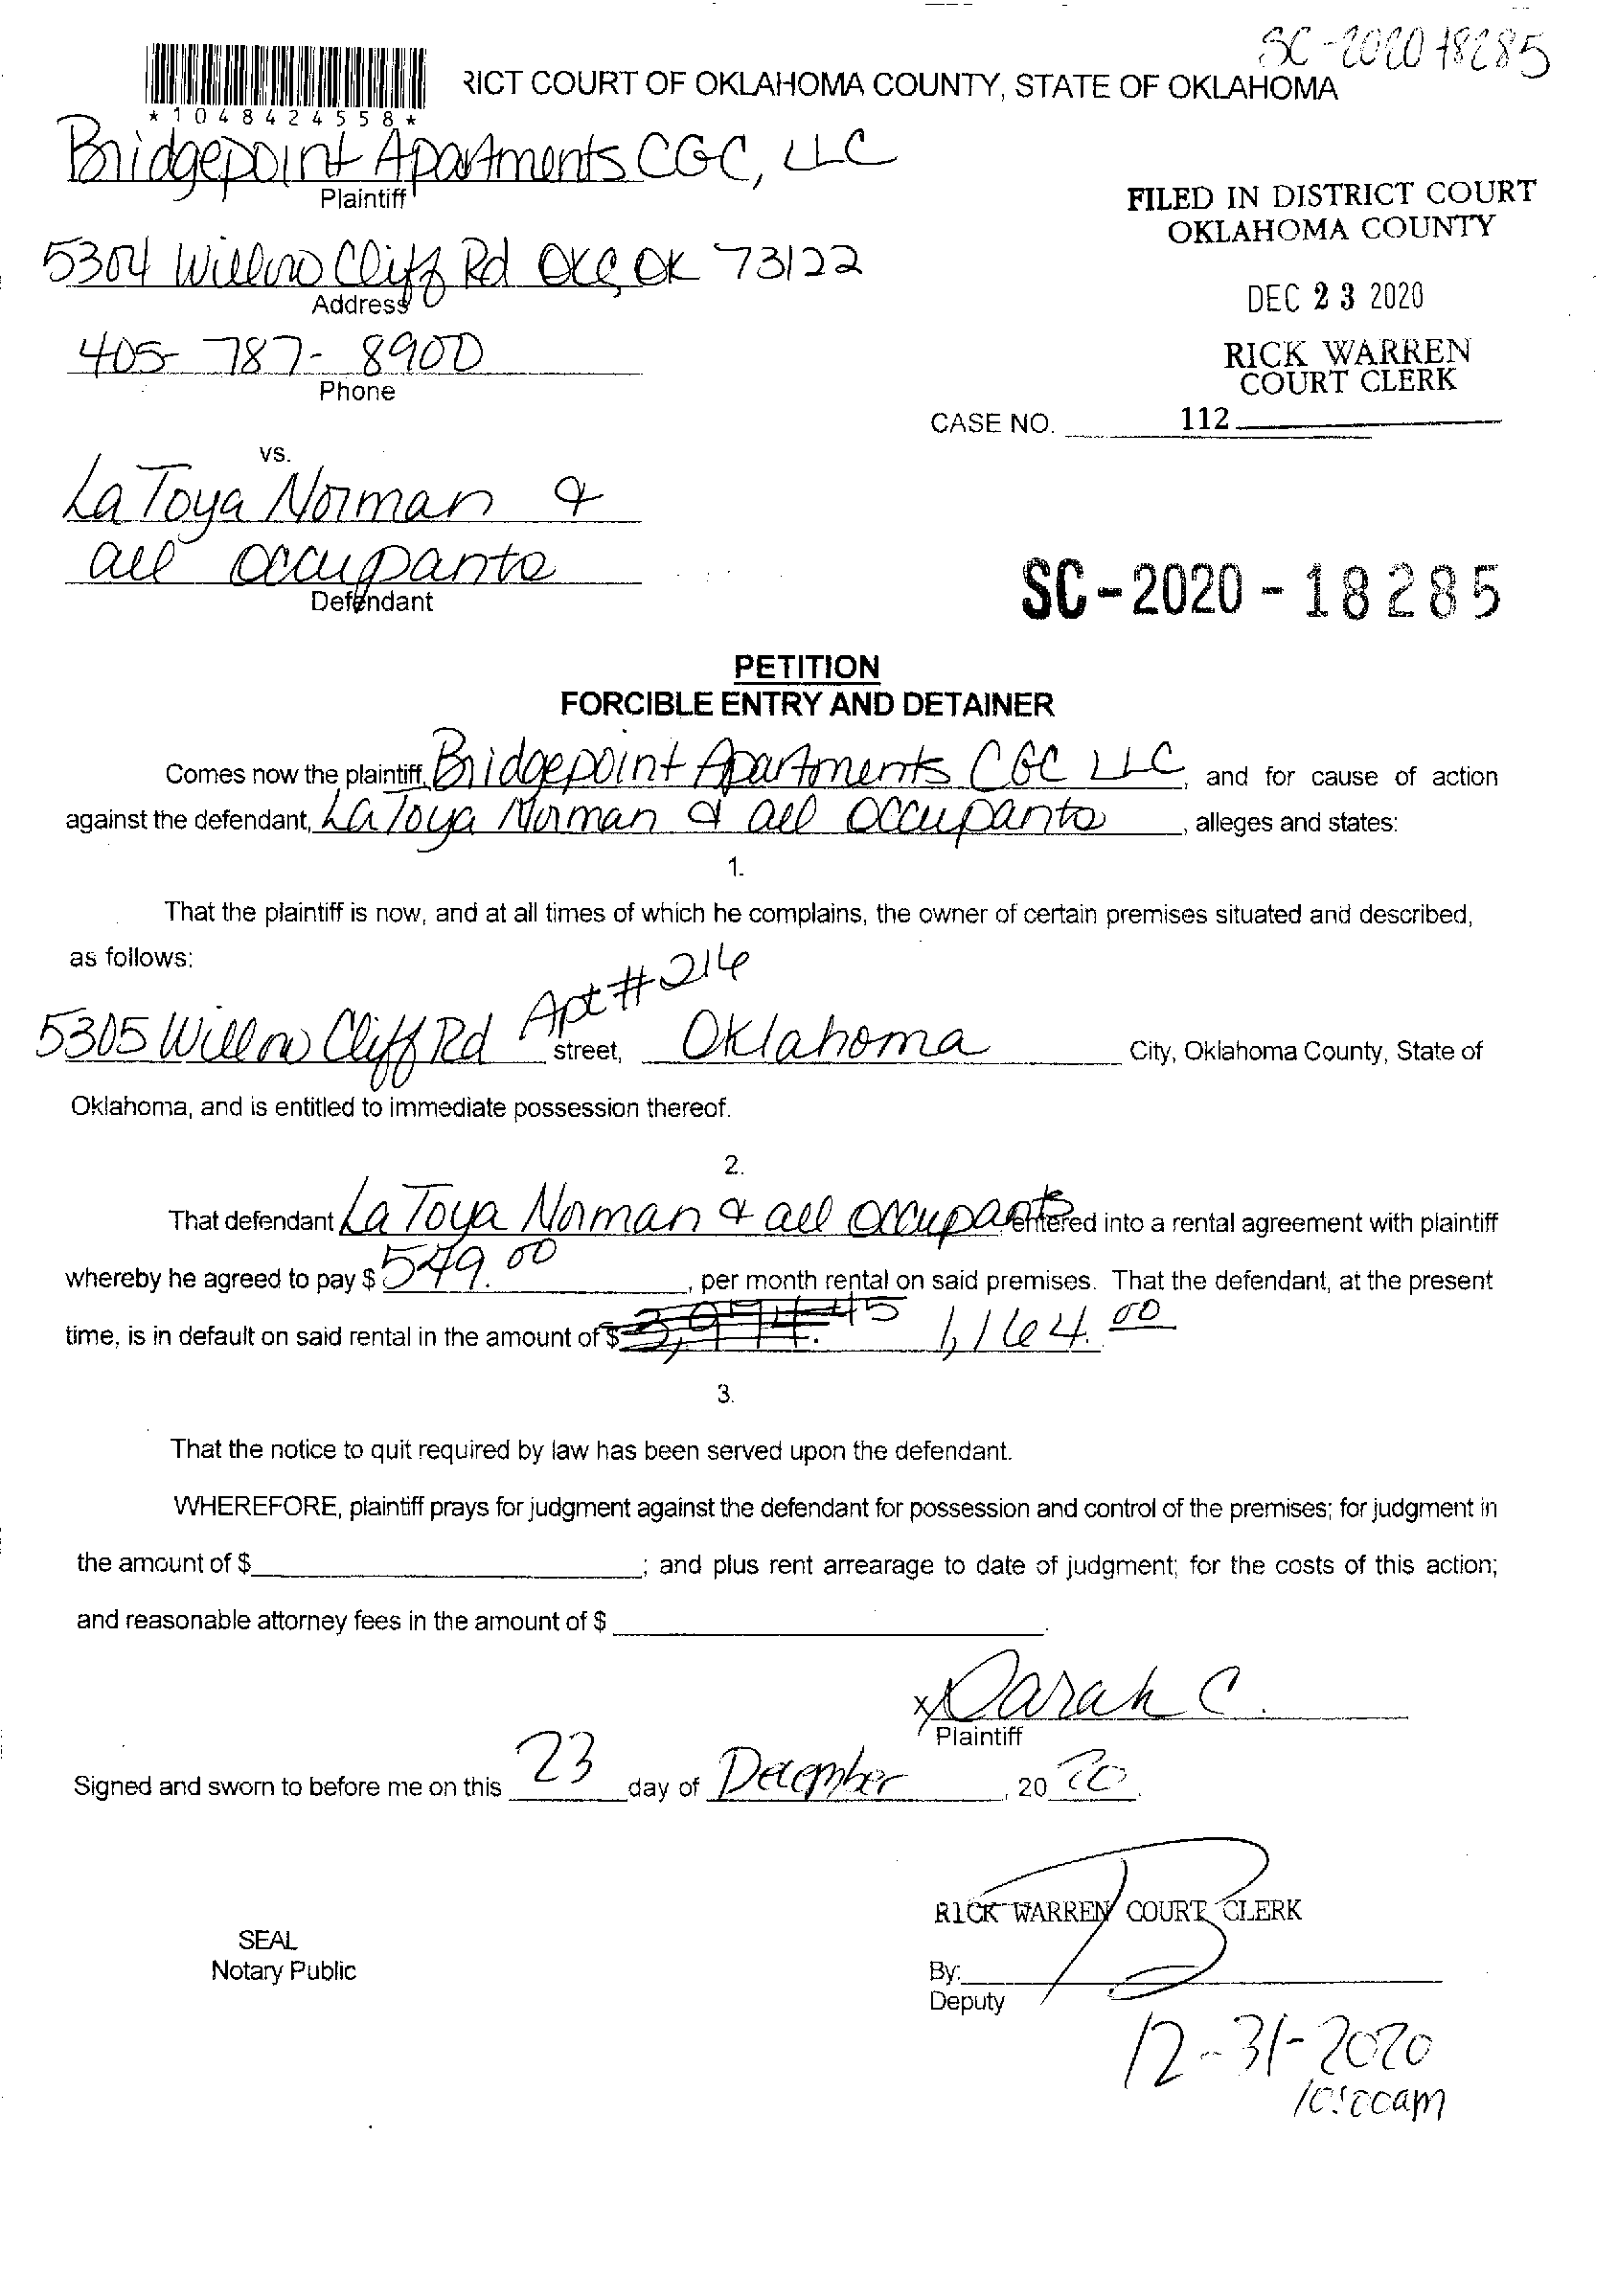 SC-2020-18285
RICT COURT OF OKLAHOMA COUNTY, STATE OF OKLAHOMA
*1048424558*
Bridgepoint Apartments CGC, LLC
Plaintiff
FILED IN DISTRICT COURT
OKLAHOMA COUNTY
5304 Willow Cliff Rd OKC, OK 73122
Address
DEC 23 2020
405-787-8900
Phone
RICK WARREN
COURT CLERK
CASE NO. 112
vs.
LaToya Norman &
all occupants
Defendant
SC-2020-18285
PETITION
FORCIBLE ENTRY AND DETAINER
Comes now the plaintiff, Bridgepoint Apartments CGC LLC, and for cause of action
against the defendant, LaToya Norman & all occupants, alleges and states:
1.
That the plaintiff is now, and at all times of which he complains, the owner of certain premises situated and described,
as follows:
5305 Willow Cliff Rd Apt #216 street, Oklahoma City, Oklahoma County, State of
Oklahoma, and is entitled to immediate possession thereof.
2.
That defendant LaToya Norman & all occupants entered into a rental agreement with plaintiff
whereby he agreed to pay $ 549.00, per month rental on said premises. That the defendant, at the present
time, is in default on said rental in the amount of $ 3,974.45 1,164.00
3.
That the notice to quit required by law has been served upon the defendant.
WHEREFORE, plaintiff prays for judgment against the defendant for possession and control of the premises; for judgment in
the amount of $ ; and plus rent arrearage to date of judgment; for the costs of this action;
and reasonable attorney fees in the amount of $ .
x Sarah C.
Plaintiff
Signed and sworn to before me on this 23 day of December, 2020.
RICK WARREN COURT CLERK
SEAL
Notary Public
By:
Deputy
12-31-2020
10:00am